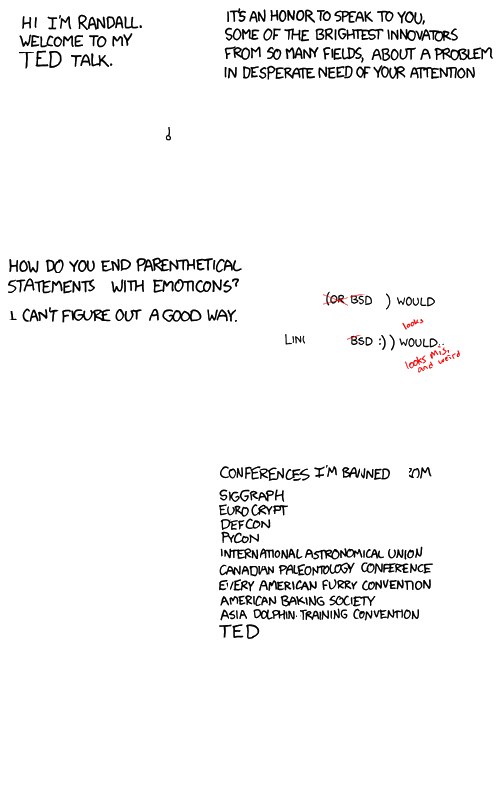 HI I'M RANDALL.
WELCOME TO MY
TED TALK.
IT'S AN HONOR TO SPEAK TO YOU,
SOME OF THE BRIGHTEST INNOVATORS
FROM SO MANY FIELDS, ABOUT A PROBLEM
IN DESPERATE NEED OF YOUR ATTENTION
HOW DO YOU END PARENTHETICAL
STATEMENTS WITH EMOTICONS?
I CAN'T FIGURE OUT A GOOD WAY.
(OR BSD ) WOULD
looks
BSD :) ) WOULD..
looks mis.
and weird
CONFERENCES I'M BANNED
SIGGRAPH
EUROCRYPT
DEFCON
PYCON
INTERNATIONAL ASTRONOMICAL UNION
CANADIAN PALEONTOLOGY CONFERENCE
EVERY AMERICAN FURRY CONVENTION
AMERICAN BAKING SOCIETY
ASIA DOLPHIN-TRAINING CONVENTION
TED